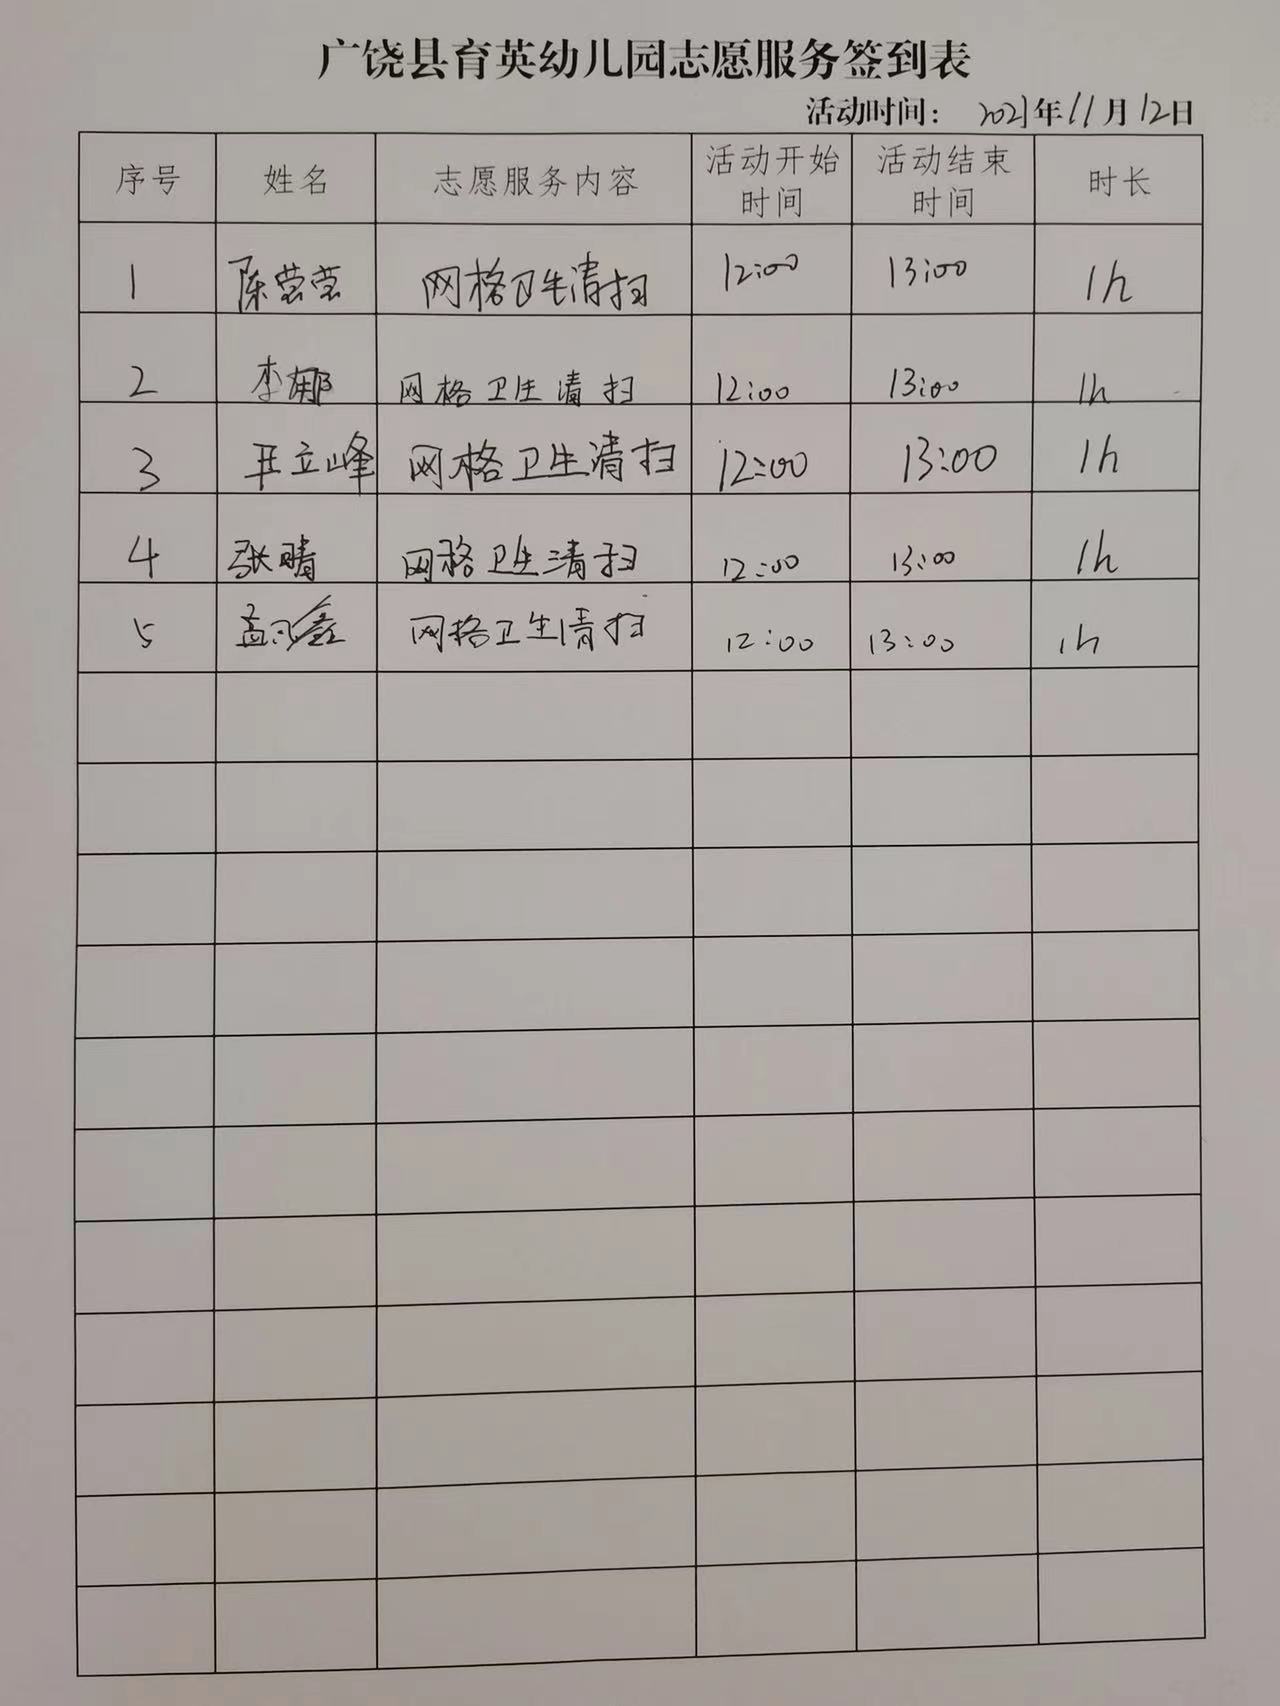 广饶县育英幼儿园志愿服务签到表
活动时间： 2021年11月12日
序号 姓名 志愿服务内容 活动开始时间 活动结束时间 时长
1 陈莹莹 网格卫生清扫 12:00 13:00 1h
2 李娜 网格卫生清扫 12:00 13:00 1h
3 王立峰 网格卫生清扫 12:00 13:00 1h
4 张晴 网格卫生清扫 12:00 13:00 1h
5 网格卫生清扫 12:00 13:00 1h